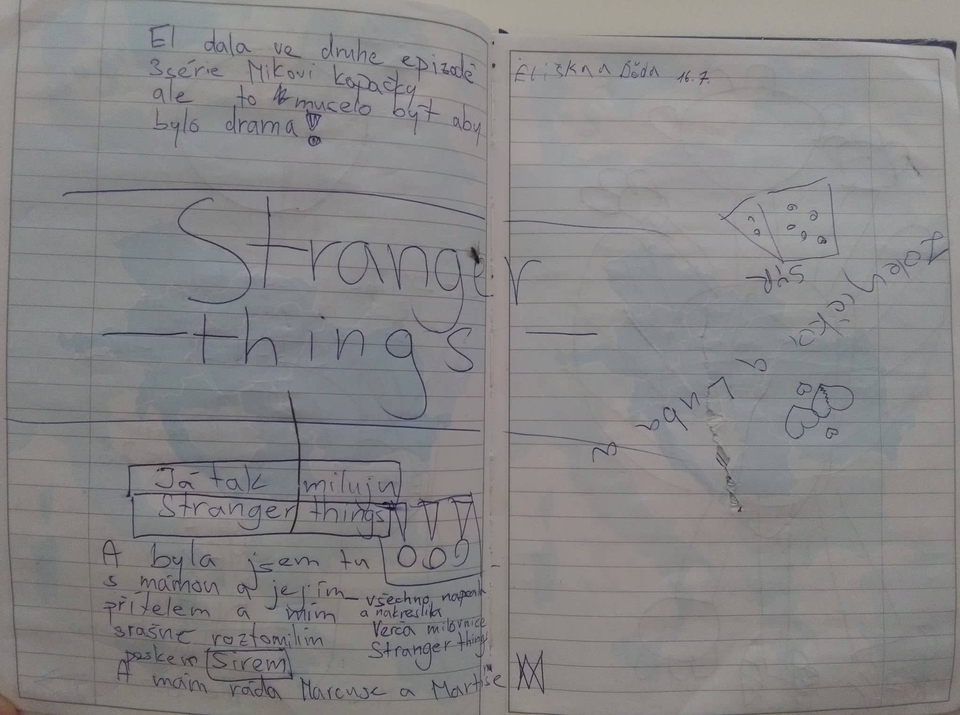 El dala ve druhe epizodě
3série Mikovi kopačky
ale to muselo být aby
bylo drama!
Stranger
things
Já tak miluju
Stranger things!!!
A byla jsem tu
s mámou a jejím
přítelem a mím
srašně roztomilím
peskem Sírem
A mám ráda Marcuse a Martise
všechno napsala
a nakreslila
Verča milovnice
Stranger things
Eliška a Dóda 16.7.
SÝR
a Luba